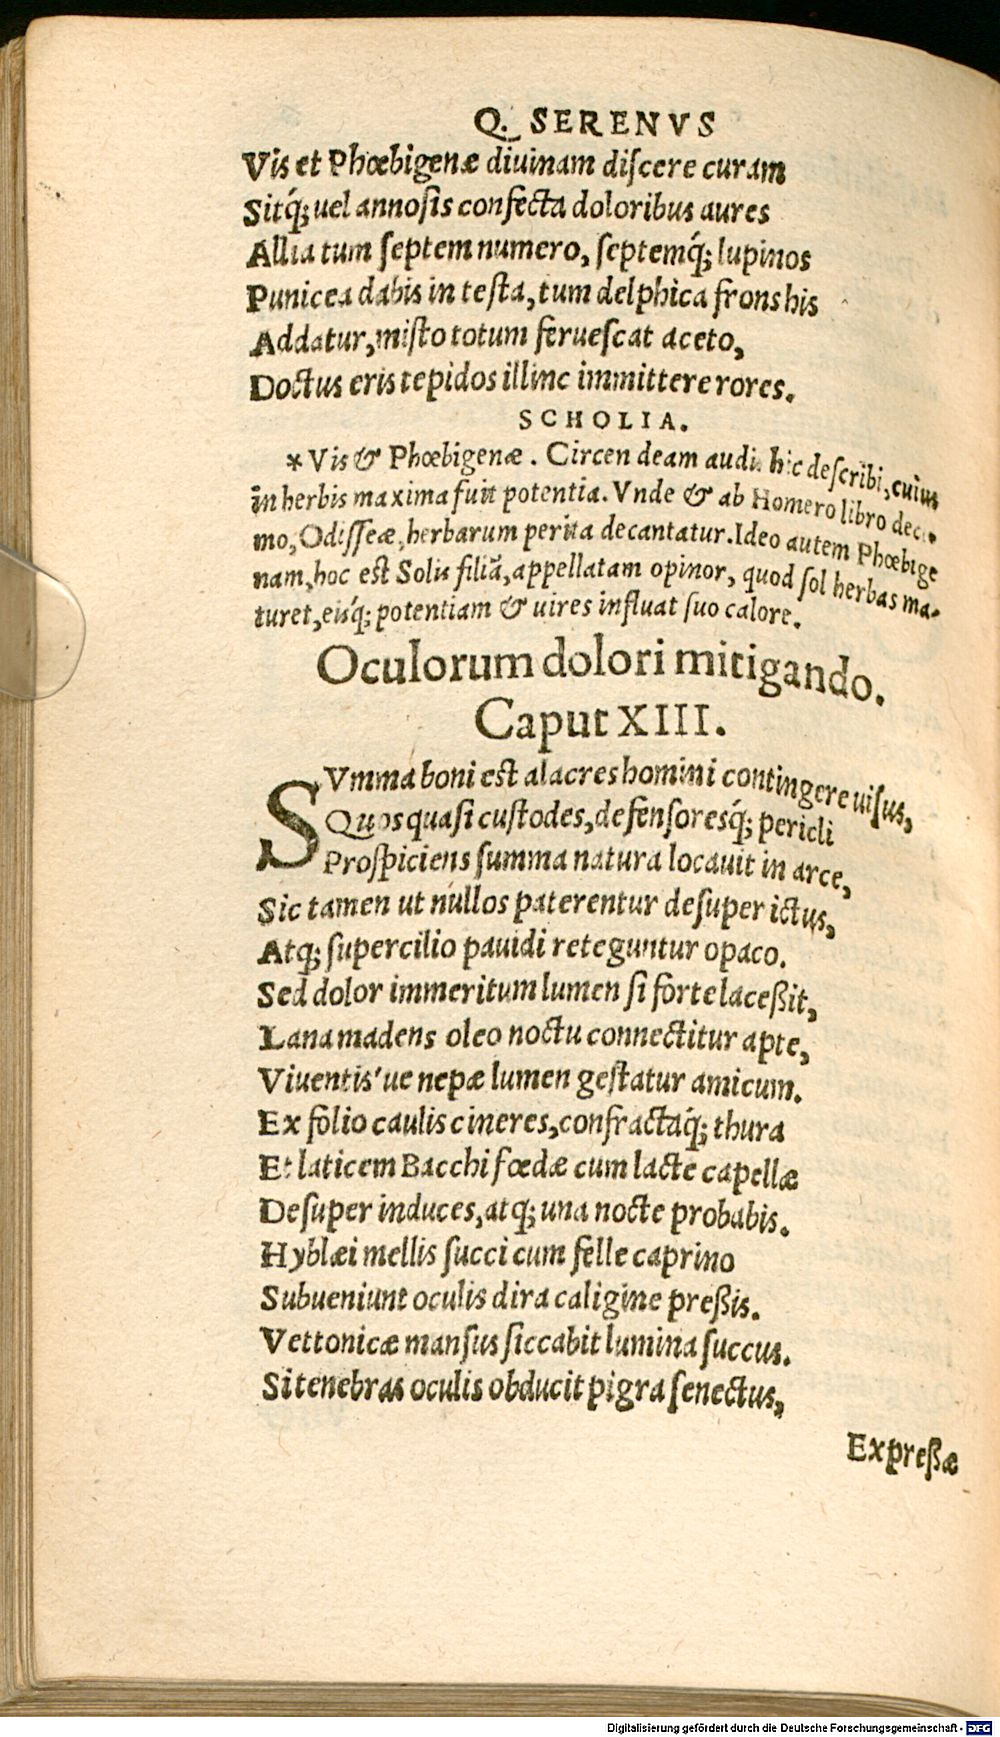 Q. SERENVS
Vis et Phœbigenæ diuinam diſcere curam
Sitq́; uel annoſis confecta doloribus aures
Allia tum ſeptem numero, ſeptemq́; lupinos
Punicea dabis in teſta, tum delphica frons his
Addatur, miſto totum ferueſcat aceto,
Doctus eris tepidos illinc immittere rores.
SCHOLIA.
* Vis & Phœbigenæ. Circen deam audi hic deſcribi, cuius
in herbis maxima fuit potentia. Vnde & ab Homero libro deci-
mo, Odiſſeæ, herbarum perita decantatur. Ideo autem Phœbige
nam, hoc est Solis filiā, appellatam opinor, quod ſol herbas ma-
turet, eisq́; potentiam & uires influat ſuo calore.
Oculorum dolori mitigando.
Caput XIII.
SVmma boni est alacres homini contingere uiſus,
Quos quaſi cuſtodes, defenſoresq́; pericli
Proſpiciens ſumma natura locauit in arce,
Sic tamen ut nullos paterentur deſuper ictus,
Atq; ſupercilio pauidi reteguntur opaco.
Sed dolor immeritum lumen ſi forte laceßit,
Lana madens oleo noctu connectitur apte,
Viuentis'ue nepæ lumen geſtatur amicum.
Ex folio caulis cineres, confractaq́; thura
Et laticem Bacchi fœdæ cum lacte capellæ
Deſuper induces, atq; una nocte probabis.
Hyblæi mellis ſucci cum felle caprino
Subueniunt oculis dira caligine preßis.
Vettonicæ manſus ſiccabit lumina ſuccus.
Si tenebras oculis obducit pigra ſenectus,
Expreßæ
Digitalisierung gefördert durch die Deutsche Forschungsgemeinschaft - DFG